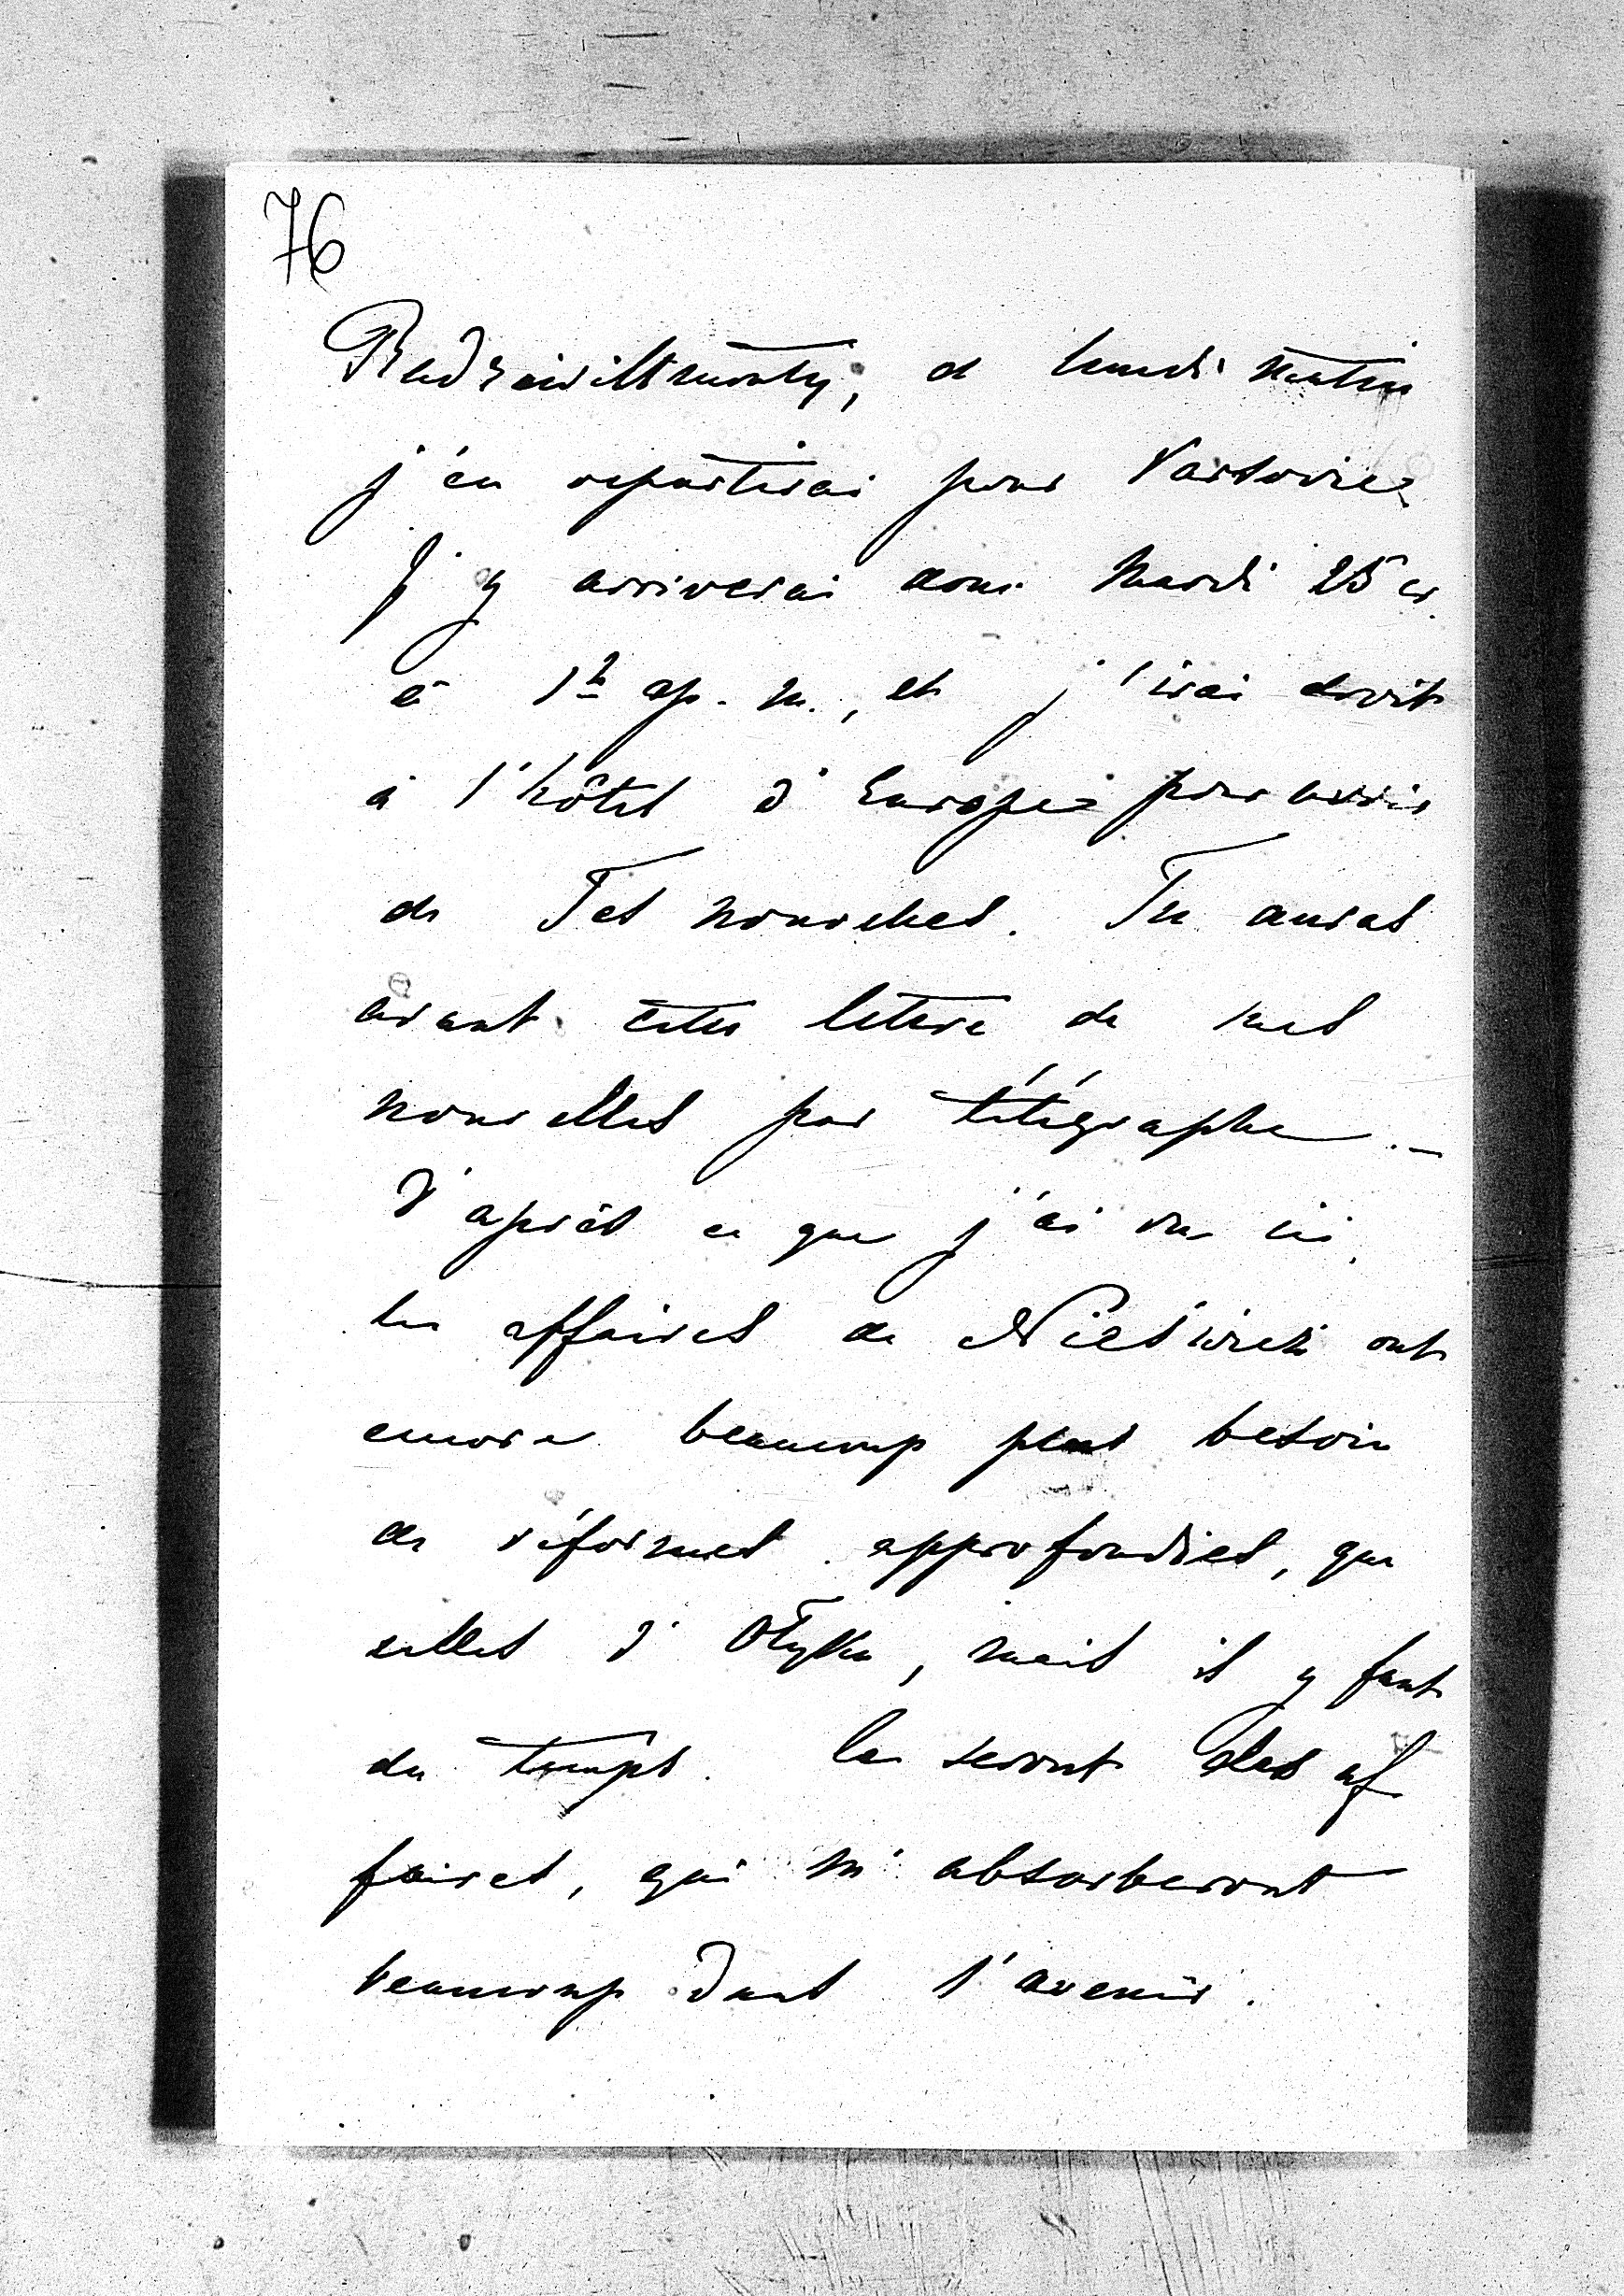 76
Radziwiłłmonty, et lundi matin
j'en repartirai pour Varsovie.
J'y arriverai donc Mardi 25 cr.
à 1h ap. m., et j'irai droit
à l'hôtel d'Europe pour avoir
de Tes nouvelles. Tu auras
avant cette lettre de mes
nouvelles par télégraphe. —
D'après ce que j'ai vu ici,
les affaires de Nieśwież ont
encore beaucoup plus besoin
de réformes approfondies, que
celles d'Ołyka, mais il y faut
du temps. Ce seront des af
faires, qui m'absorberont
beaucoup dans l'avenir.